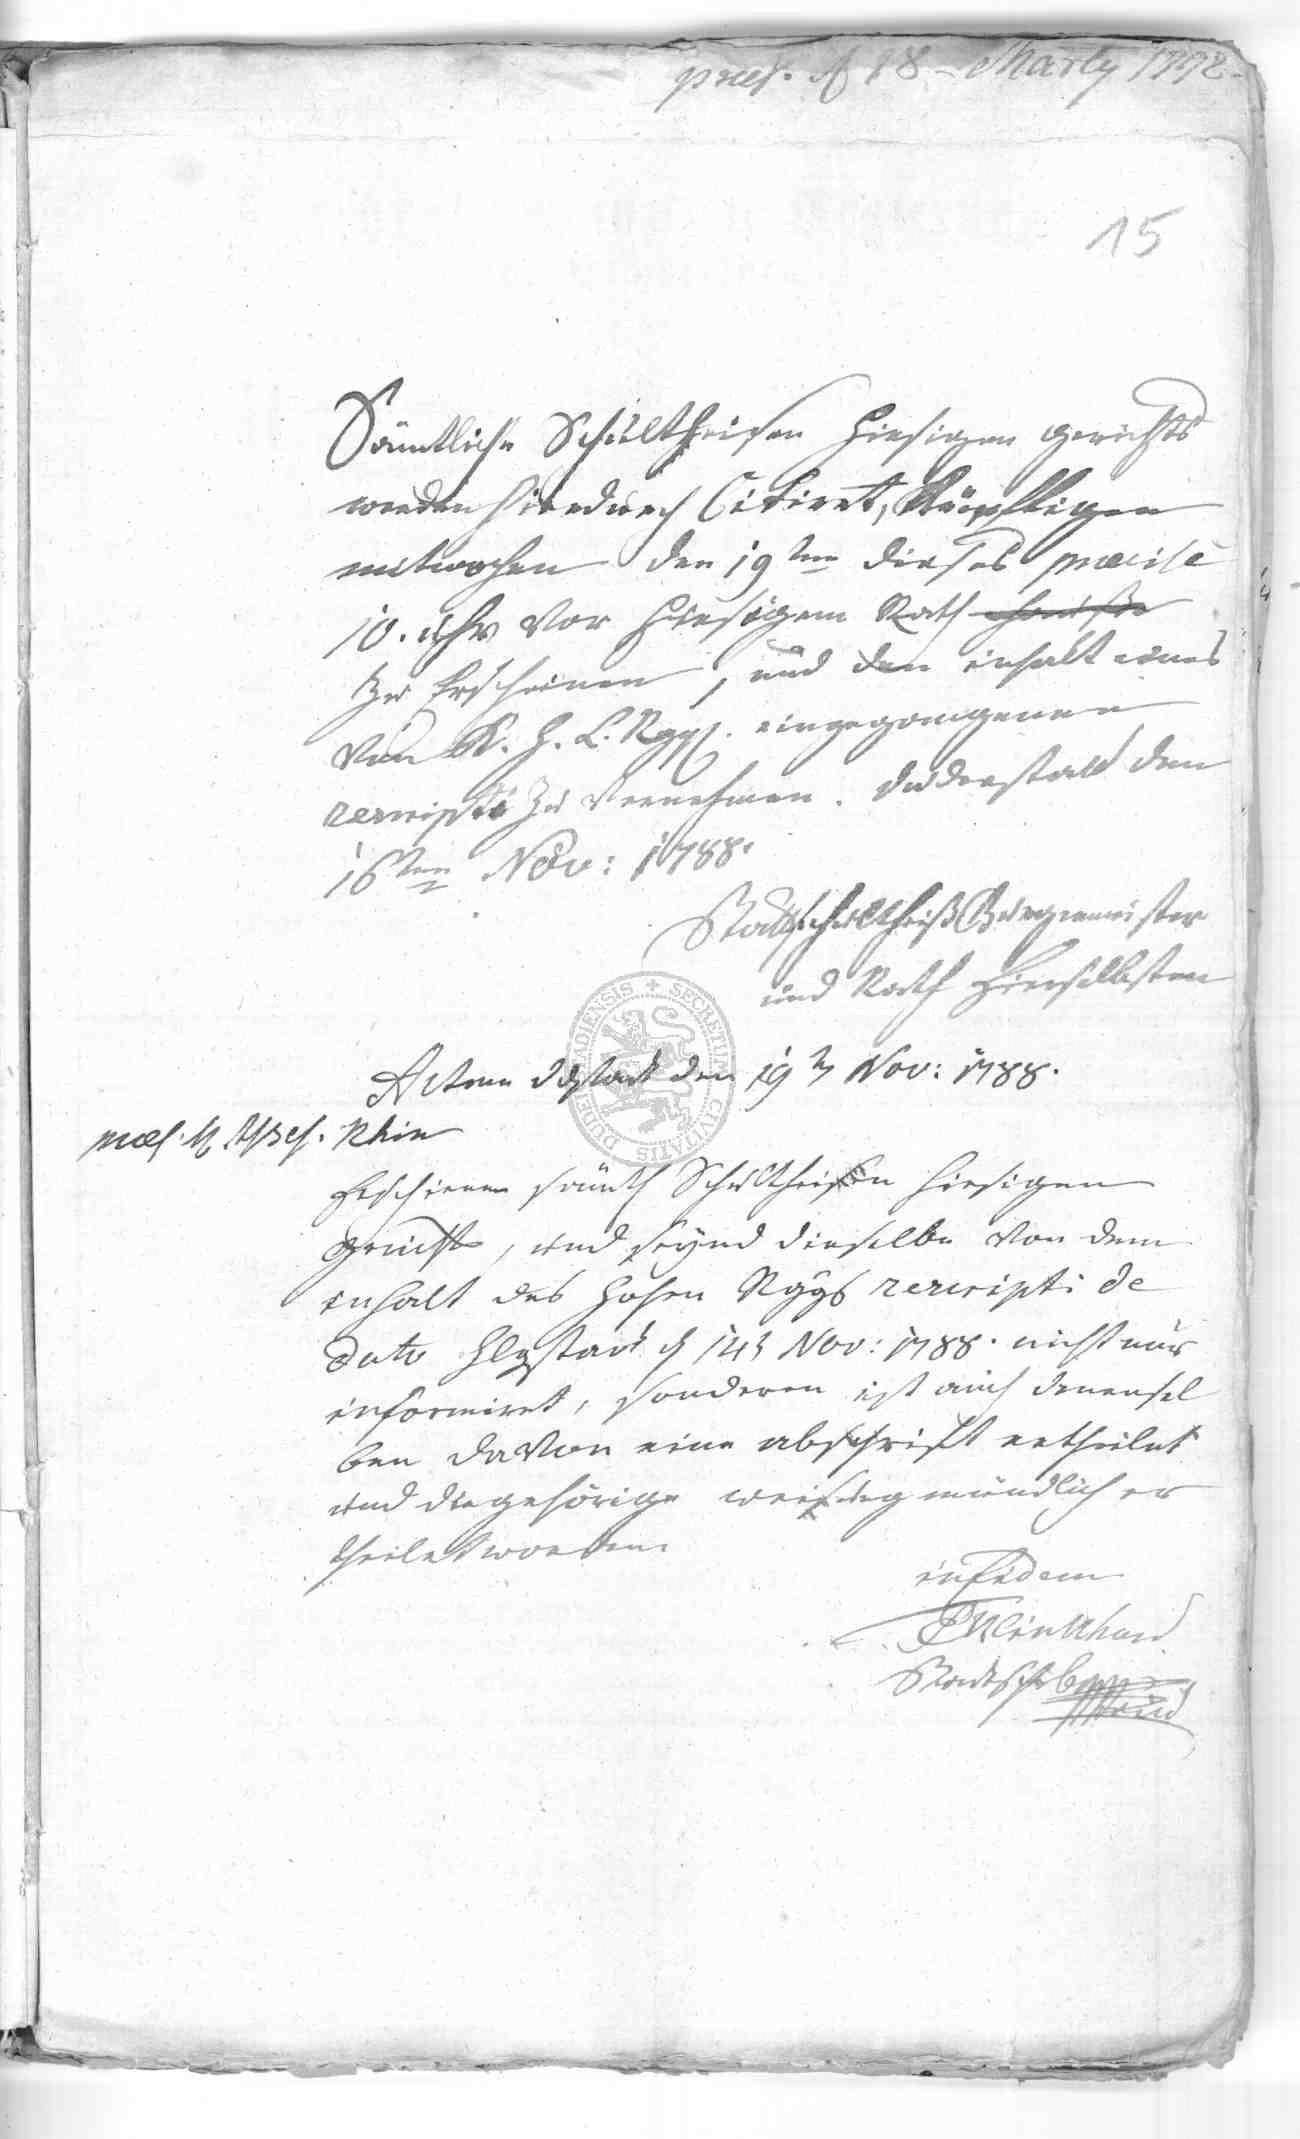 præs. d 18 Marty 1792
15
Sämtliche Schultheisen hiesigen gerichts
werden hierdurch Citiret, Künftigen
mitwochen den 19ten dieses præcise
10. uhr vor hiesigem Rath
zu Erscheinen, und den inhalt eines
Von K. H. L. Rggs. eingegangenen
rescripti zu Vernehmen. Duderstadt den
16ten Nov: 1788.
Stadtschultheiß Burgemeister
und Rath hierselbsten
DUDERSTADIENSIS + SECRETUM CIVITATIS
Actum dstadt den 19t Nov: 1788.
præs. Assess. Rhin
Erschienen sämtl Schultheisen hiesigen
gerichts, und seynd dieselbe von dem
inhalt des hohen Rggs rescripti de
dato Hlgstadt d 14t Nov: 1788. nicht nur
informiret, sonderen ist auch denensel
ben davon eine abschrift ertheilet
und die gehörige weisung mündlich er
theilet worden.
in fidem
Stadtschrbr